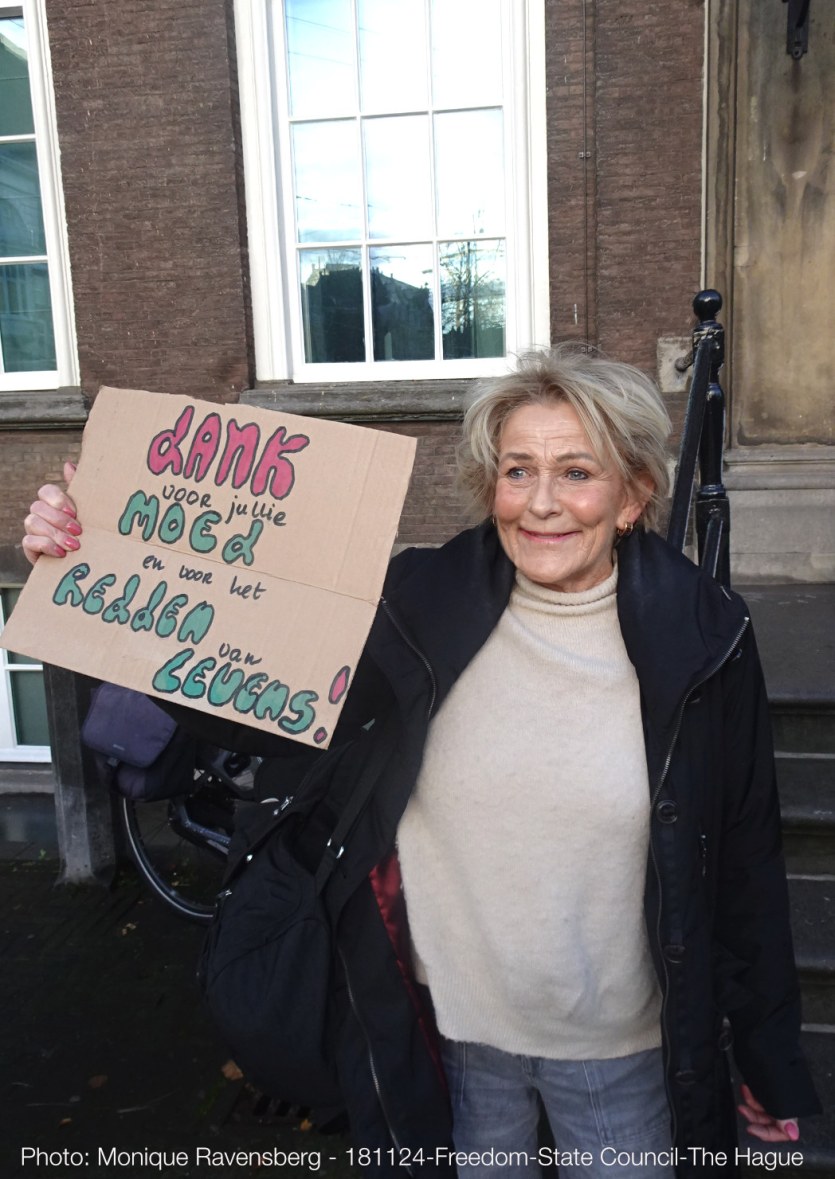 dANK
voor jullie
MOEd
en voor het
REddEN
van
LEVENS!
Photo: Monique Ravensberg - 181124-Freedom-State Council-The Hague